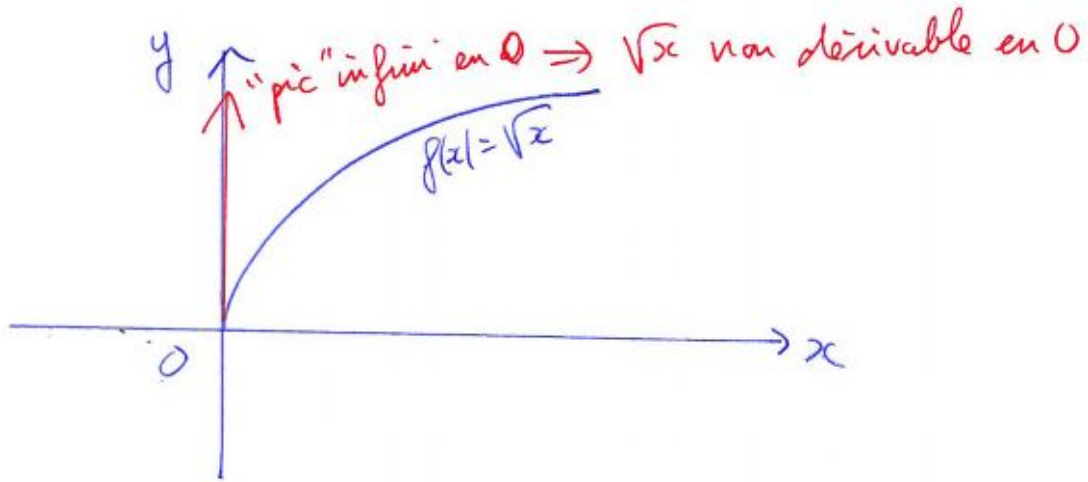 y
"pic" infini en 0 ⇒ √x non dérivable en 0
f(x)=√x
0
x